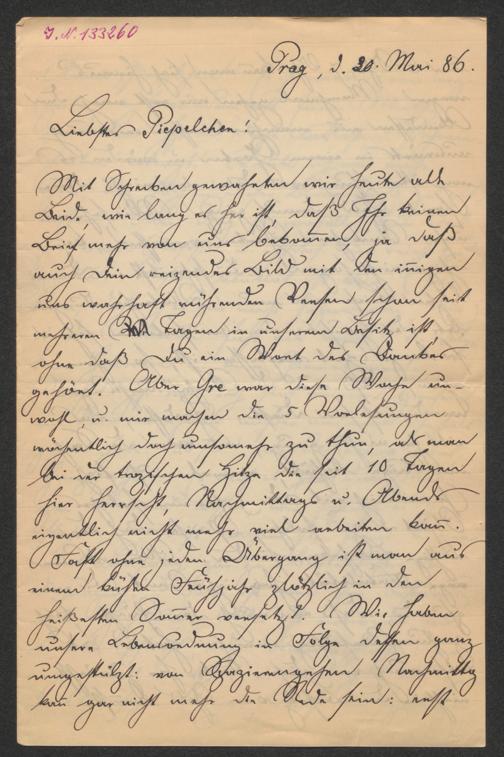 J.N. 133260
Prag, d. 20. Mai 86.
Liebstes Piepelchen!
Mit Schrecken gewahrten wir heute alle
Beide, wie lang es her ist, daß Ihr keinen
Brief mehr von uns bekommen, ja daß
auch Dein reizendes Bild mit den innigen
uns wahrhaft rührenden Versen schon seit
mehreren Tagen in unserem Besitz ist,
ohne daß Du ein Wort des Dankes
gehört. Aber Gre war diese Woche un-
wohl, u. mir machen die 5 Vorlesungen
wöchentlich doch umsomehr zu thun, als man
bei der tropischen Hitze die seit 10 Tagen
hier herrscht Nachmittags u. Abends
eigentlich nicht mehr viel arbeiten kann.
Fast ohne jeden Übergang ist man aus
einem kühlen Frühjahr plötzlich in den
heißesten Sommer versetzt. Wir haben
unsere Lebensordnung in Folge dessen ganz
umgestülpt: von Spazierengehen Nachmittg
kann gar nicht mehr die Rede sein: erst